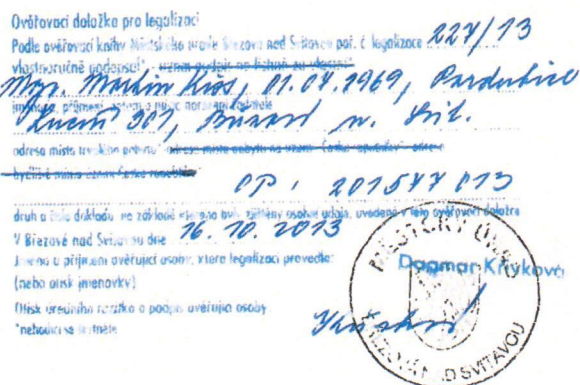 Ověřovací doložka pro legalizaci
Podle ověřovací knihy Městského úřadu Březová nad Svitavou poř. č. legalizace 227/13
vlastnoručně podepsal*
Mgr. Martin Kiss, 01.07.1969, Pardubice
jméno/a, příjmení, datum a místo narození žadatele
301, n. Svit.
adresa místa trvalého pobytu* adresa místa pobytu na území České republiky*
bydliště mimo území České republiky
OP: 201547013
druh a číslo dokladu, na základě kterého byly zjištěny osobní údaje, uvedené v této ověřovací doložce
V Březové nad Svitavou dne 16.10.2013
Jméno a příjmení ověřující osoby, která legalizaci provedla:
Dagmar Kňyková
(nebo otisk jmenovky)
Otisk úředního razítka a podpis ověřující osoby
*nehodící se škrtněte
MĚSTSKÝ ÚŘAD
BŘEZOVÁ NAD SVITAVOU